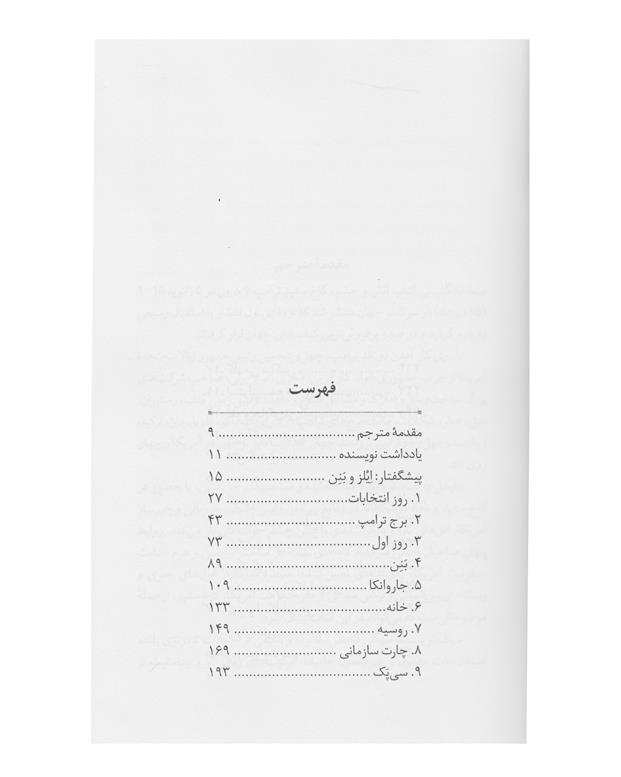 فهرست
مقدمهٔ مترجم ..................................... ۹
یادداشت نویسنده .............................. ۱۱
پیشگفتار: اِیْلز و بَنِن ........................... ۱۵
۱. روز انتخابات.................................. ۲۷
۲. برج ترامپ .................................... ۴۳
۳. روز اول....................................... ۷۳
۴. بَنِن............................................ ۸۹
۵. جاروانکا .................................... ۱۰۹
۶. خانه......................................... ۱۳۳
۷. روسیه ...................................... ۱۴۹
۸. چارت سازمانی ............................ ۱۶۹
۹. سی‌پَک ..................................... ۱۹۳